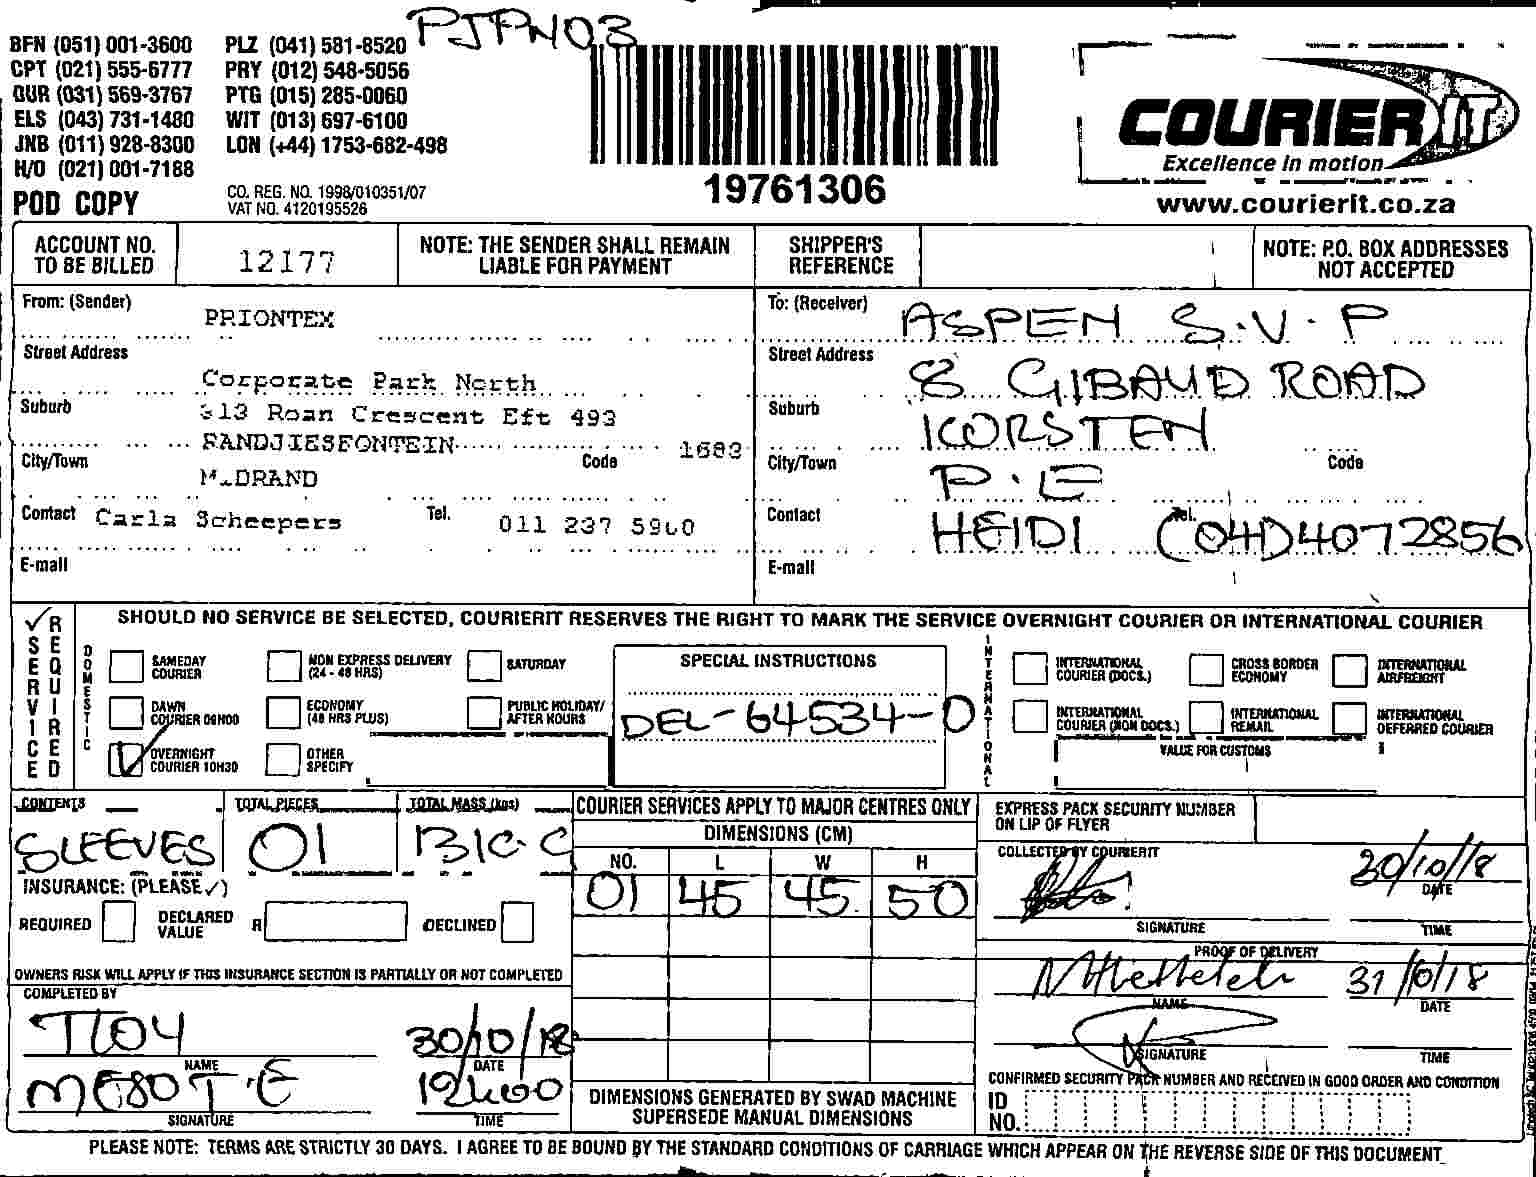 PJPN03
BFN (051) 001-3600 PLZ (041) 581-8520
CPT (021) 555-6777 PRY (012) 548-5056
DUR (031) 569-3767 PTG (015) 285-0060
ELS (043) 731-1480 WIT (013) 697-6100
JNB (011) 928-8300 LON (+44) 1753-682-498
H/O (021) 001-7188
POD COPY
CO. REG. NO. 1998/010351/07
VAT NO. 4120195526
19761306
COURIER IT
Excellence in motion
www.courierit.co.za
ACCOUNT NO. TO BE BILLED 12177
NOTE: THE SENDER SHALL REMAIN LIABLE FOR PAYMENT
SHIPPER'S REFERENCE
NOTE: P.O. BOX ADDRESSES NOT ACCEPTED
From: (Sender) PRIONTEX
Street Address
Corporate Park North
Suburb 313 Roan Crescent Eft 493
RANDJIESFONTEIN
City/Town Code 1683
MIDRAND
Contact Carla Scheepers Tel. 011 237 5900
E-mail
To: (Receiver) ASPEN S.V.P
Street Address 8 GIBAUD ROAD
Suburb KORSTEN
City/Town P.E Code
Contact HEIDI Tel. (041) 4072856
E-mail
✓ SERVICE REQUIRED
SHOULD NO SERVICE BE SELECTED, COURIERIT RESERVES THE RIGHT TO MARK THE SERVICE OVERNIGHT COURIER OR INTERNATIONAL COURIER
DOMESTIC
SAMEDAY COURIER
NON EXPRESS DELIVERY (24 - 48 HRS)
SATURDAY
DAWN COURIER 09H00
ECONOMY (48 HRS PLUS)
PUBLIC HOLIDAY/ AFTER HOURS
OVERNIGHT COURIER 10H30
OTHER SPECIFY
SPECIAL INSTRUCTIONS
DEL-64534-0
INTERNATIONAL
INTERNATIONAL COURIER (DOCS.)
CROSS BORDER ECONOMY
INTERNATIONAL AIRFREIGHT
INTERNATIONAL COURIER (NON DOCS.)
INTERNATIONAL REMAIL
INTERNATIONAL DEFERRED COURIER
VALUE FOR CUSTOMS
CONTENTS TOTAL PIECES TOTAL MASS (kgs)
SLEEVES 01
INSURANCE: (PLEASE ✓)
REQUIRED DECLARED VALUE R DECLINED
OWNERS RISK WILL APPLY IF THIS INSURANCE SECTION IS PARTIALLY OR NOT COMPLETED
COMPLETED BY
30/10/18
NAME DATE
12h00
SIGNATURE TIME
COURIER SERVICES APPLY TO MAJOR CENTRES ONLY
DIMENSIONS (CM)
NO. L W H
01 45 45 50
DIMENSIONS GENERATED BY SWAD MACHINE SUPERSEDE MANUAL DIMENSIONS
EXPRESS PACK SECURITY NUMBER ON LIP OF FLYER
COLLECTED BY COURIERIT
30/10/18
DATE
SIGNATURE TIME
PROOF OF DELIVERY
31/10/18
NAME DATE
SIGNATURE TIME
CONFIRMED SECURITY PACK NUMBER AND RECEIVED IN GOOD ORDER AND CONDITION
ID NO.
PLEASE NOTE: TERMS ARE STRICTLY 30 DAYS. I AGREE TO BE BOUND BY THE STANDARD CONDITIONS OF CARRIAGE WHICH APPEAR ON THE REVERSE SIDE OF THIS DOCUMENT